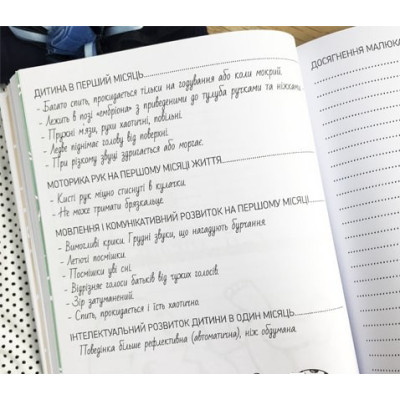 ДИТИНА В ПЕРШИЙ МІСЯЦЬ
- Багато спить, прокидається тільки на годування або коли мокрий.
- Лежить в позі «ембріона» з приведеними до тулуба ручками та ніжками.
- Пружкі м'язи, рухи хаотичні, повільні.
- Ледве піднімає голову від поверхні.
- При різкому звуці здригається або моргає.
МОТОРИКА РУК НА ПЕРШОМУ МІСЯЦІ ЖИТТЯ
- Кисті рук міцно стиснуті в кулачки.
- Не може тримати брязкальце.
МОВЛЕННЯ І КОМУНІКАТИВНИЙ РОЗВИТОК НА ПЕРШОМУ МІСЯЦІ
- Вимогливі крики. Грудні звуси, що нагадують бурчання
- Летючі посмішки.
- Посмішки уві сні.
- Відрізняє голоси батьків від чужих голосів.
- Зір затуманений.
- Спить, прокидається і їсть хаотично.
ІНТЕЛЕКТУАЛЬНИЙ РОЗВИТОК ДИТИНИ В ОДИН МІСЯЦЬ
Поведінка більше рефлективна (автоматична), ніж обдумана.
ДОСЯГНЕННЯ МАЛЮКА